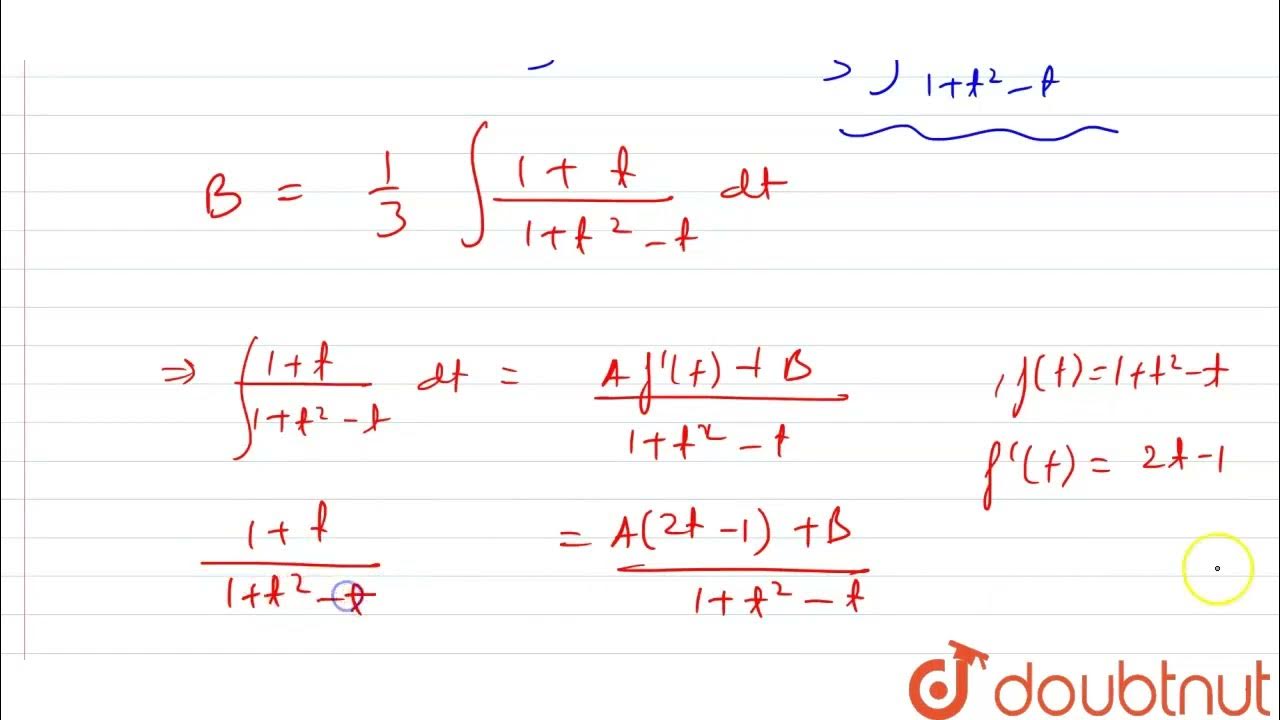 1+t² -t
B = 1/3 ∫ (1 + t)/(1+t² -t) dt
⇒ ∫ (1+t)/(1+t² -t) dt = (A f'(t) + B)/(1+t² -t) , f(t)=1+t²-t
f'(t) = 2t-1
(1+t)/(1+t² -t) = (A(2t-1) +B)/(1+t² -t)
doubtnut